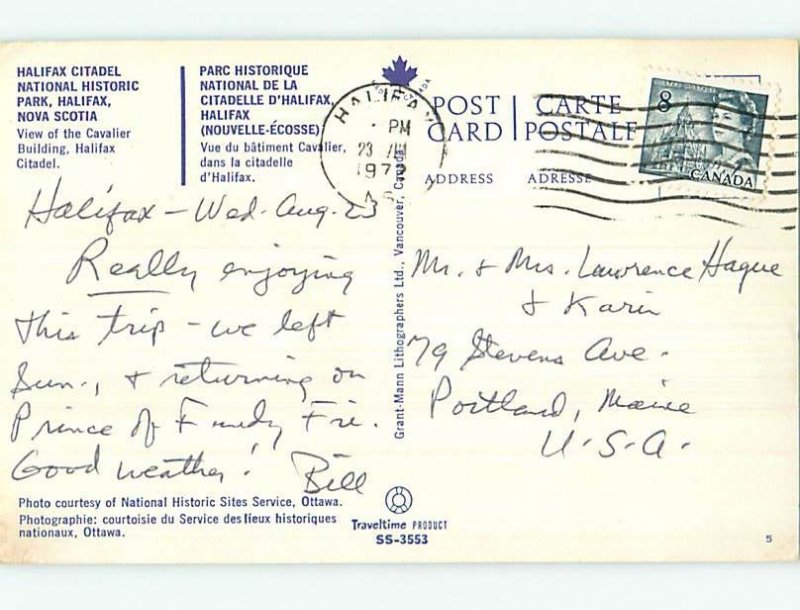 HALIFAX CITADEL
NATIONAL HISTORIC
PARK, HALIFAX,
NOVA SCOTIA
View of the Cavalier
Building, Halifax
Citadel.
PARC HISTORIQUE
NATIONAL DE LA
CITADELLE D'HALIFAX,
HALIFAX
(NOUVELLE-ÉCOSSE)
Vue du bâtiment Cavalier,
dans la citadelle
d'Halifax.
HALIFAX
PM
23 VIII
1972
POST CARD
CARTE POSTALE
ADDRESS
ADRESSE
8
CANADA
Halifax - Wed. Aug. 23
Really enjoying
this trip - we left
Sun., + returning on
Prince of Fundy Fri.
Good weather! Bill
Mr. + Mrs. Lawrence Hague
+ Karin
79 Stevens Ave.
Portland, Maine
U.S.A.
Grant-Mann Lithographers Ltd., Vancouver, Canada
Photo courtesy of National Historic Sites Service, Ottawa.
Photographie: courtoisie du Service des lieux historiques
nationaux, Ottawa.
Traveltime PRODUCT
SS-3553
5